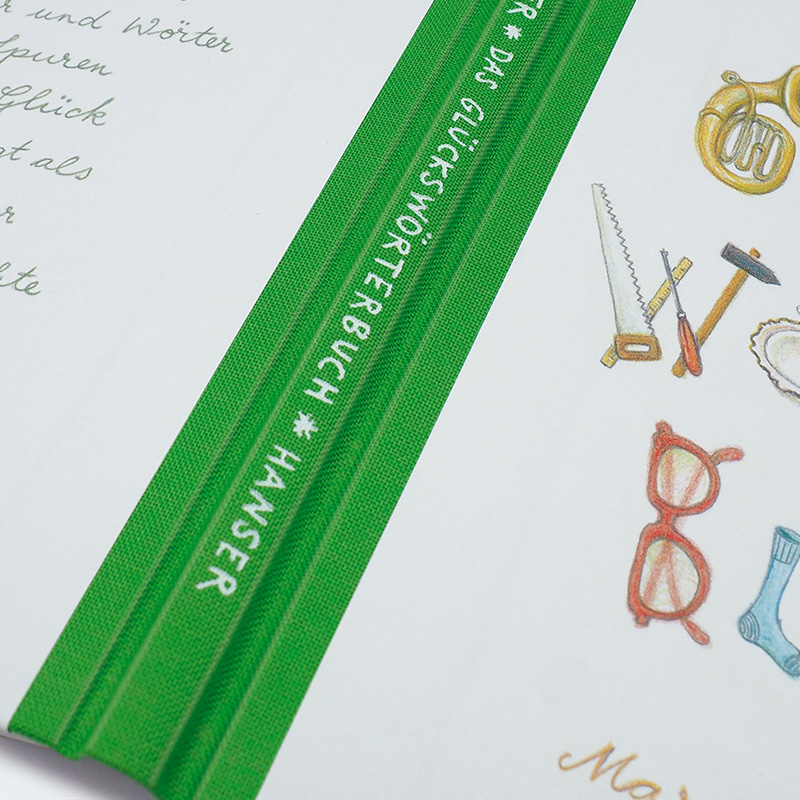 und Wörter
Spuren
Glück
als
DAS GLÜCKSWÖRTERBUCH * HANSER